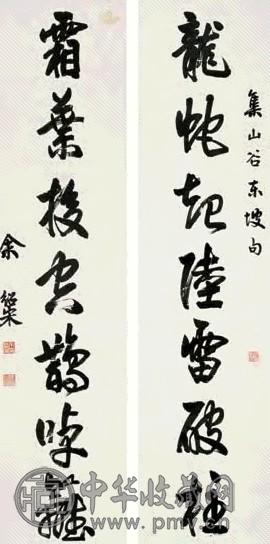 集山谷东坡句
龍蛇起陸雷破柱
霜葉投空鵲啅籬
余紹宋
中华收藏网